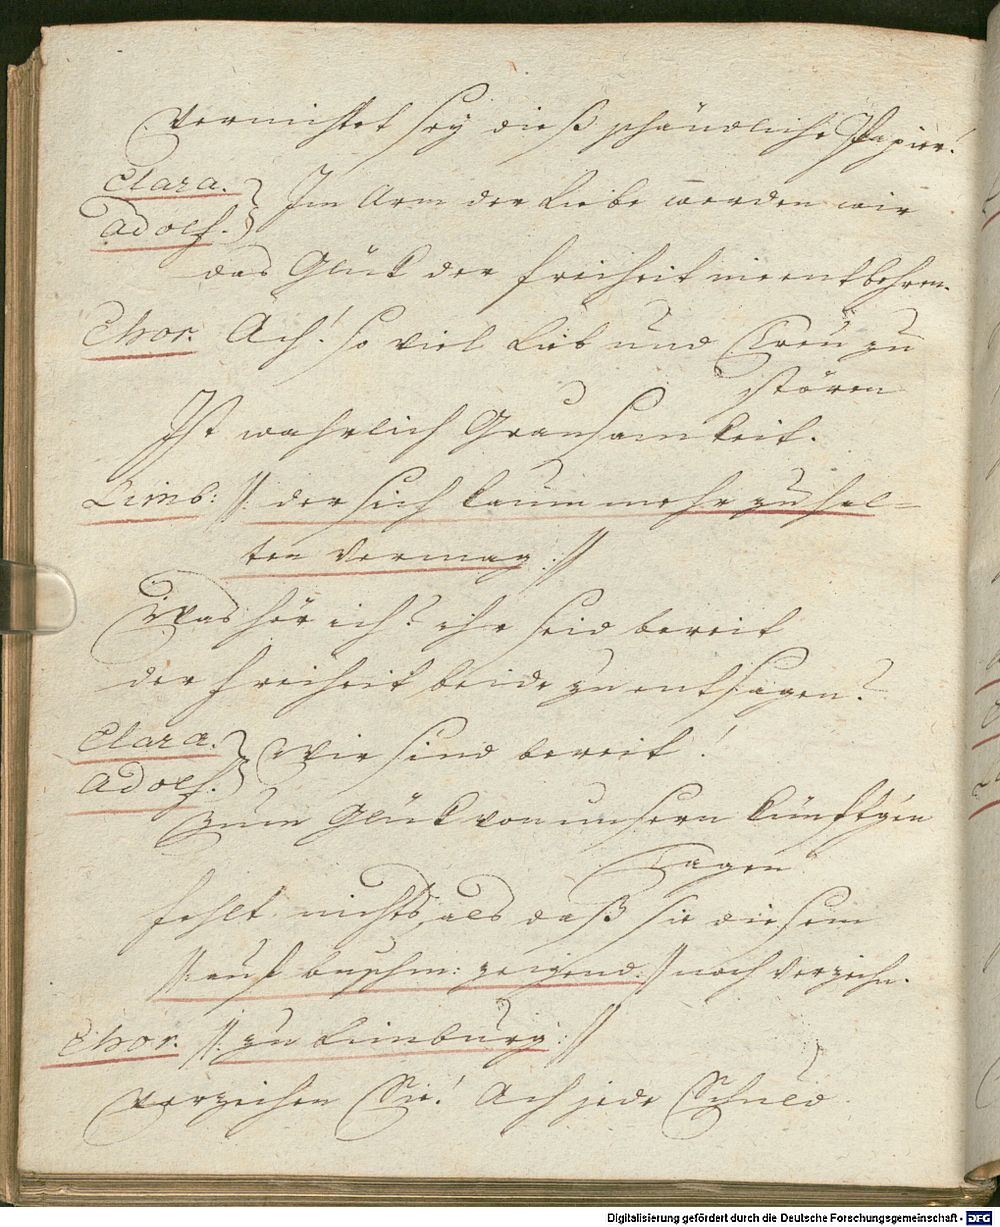 Vernichtet sey dieß schändliche Papier!
Clara.
Adolf. } Im Arm der Liebe werden wir
das Glück der Freiheit nie entbehren.
Chor. Ach! so viel Lieb und Treu zu
stören
Ist wahrlich Grausamkeit.
Limb: //: der sich kaum mehr zu hal-
ten vermag ://
Was hör ich? ihr seid bereit
der Freiheit beide zu entsagen?
Clara.
Adolf. } Wir sind bereit!
Zum Glück von unsern künft'gen
Tagen
fehlt nichts, als daß sie diesem
//: auf buschm: zeigend :// noch verzeihn.
Chor. //: zu Limburg ://
Verzeihen Sie! Ach jede Schuld
Digitalisierung gefördert durch die Deutsche Forschungsgemeinschaft - DFG